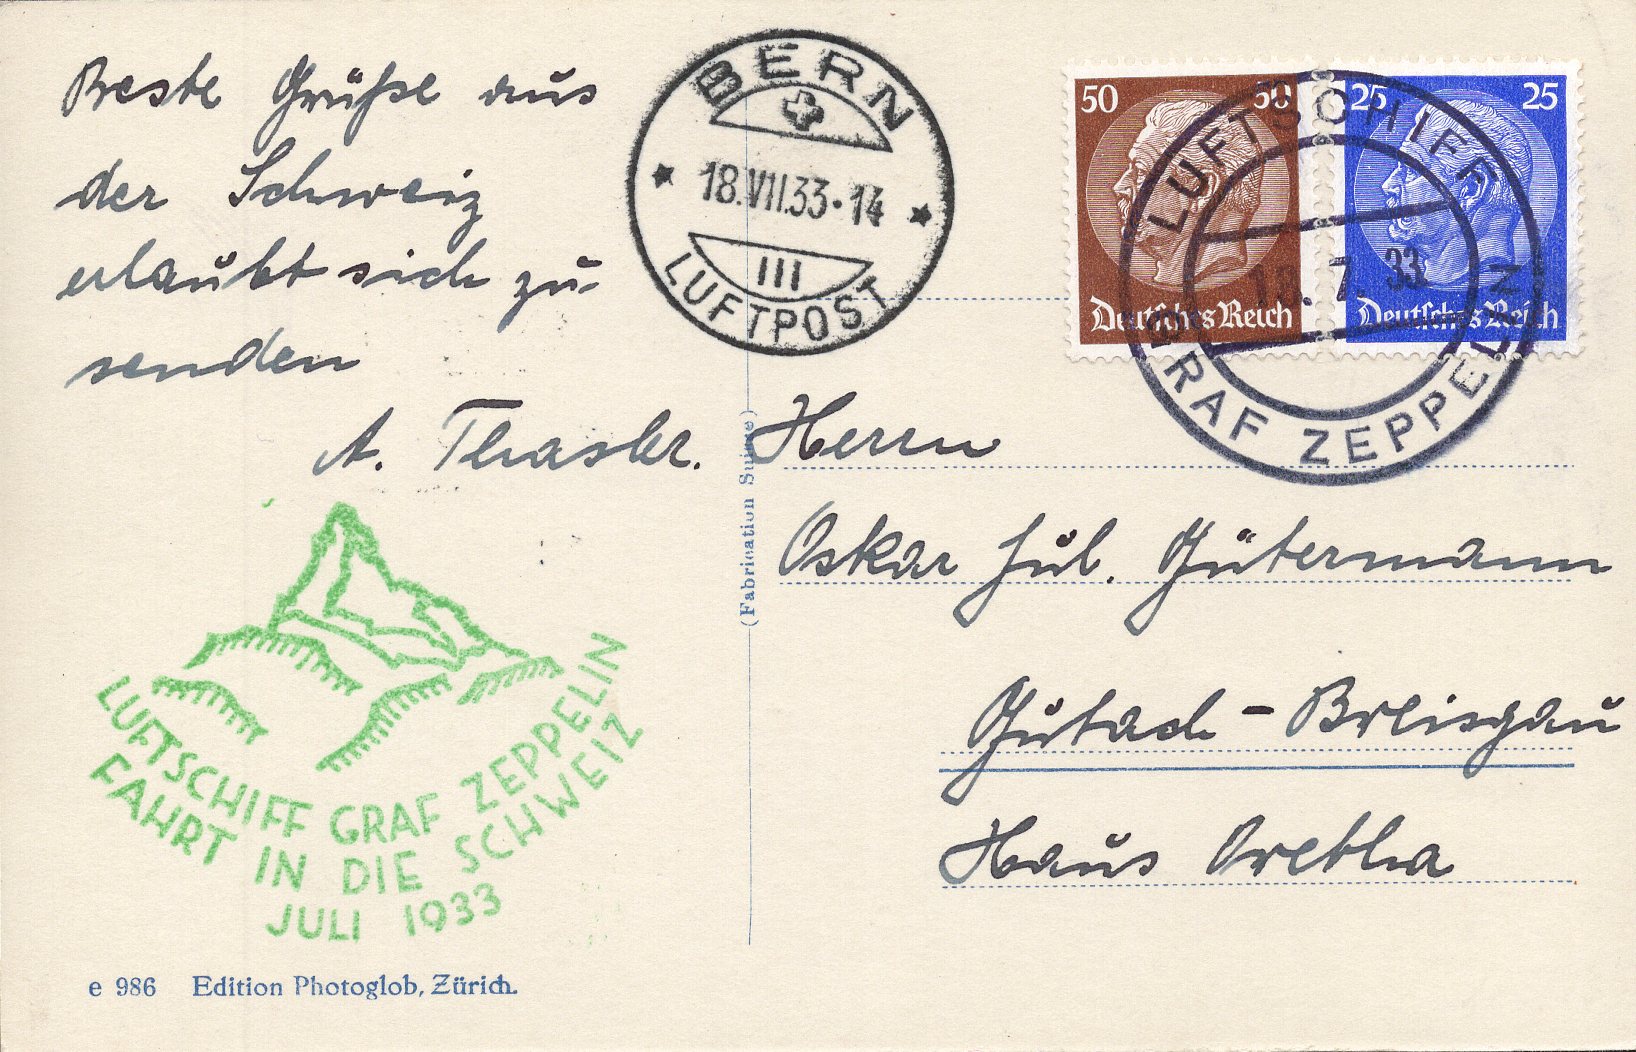 Beste Grüße aus
der Schweiz
erlaubt sich zu-
senden
A.
BERN
18.VII.33·14
III
LUFTPOST
50 50
Deutsches Reich
25 25
Deutsches Reich
LUFTSCHIFF
18. 7. 33
GRAF ZEPPELIN
(Fabrication Suisse)
Herrn
Oskar Jul. Gütermann
Gutach - Breisgau
Haus Oretha
LUFTSCHIFF GRAF ZEPPELIN
FAHRT IN DIE SCHWEIZ
JULI 1933
e 986 Edition Photoglob, Zürich.